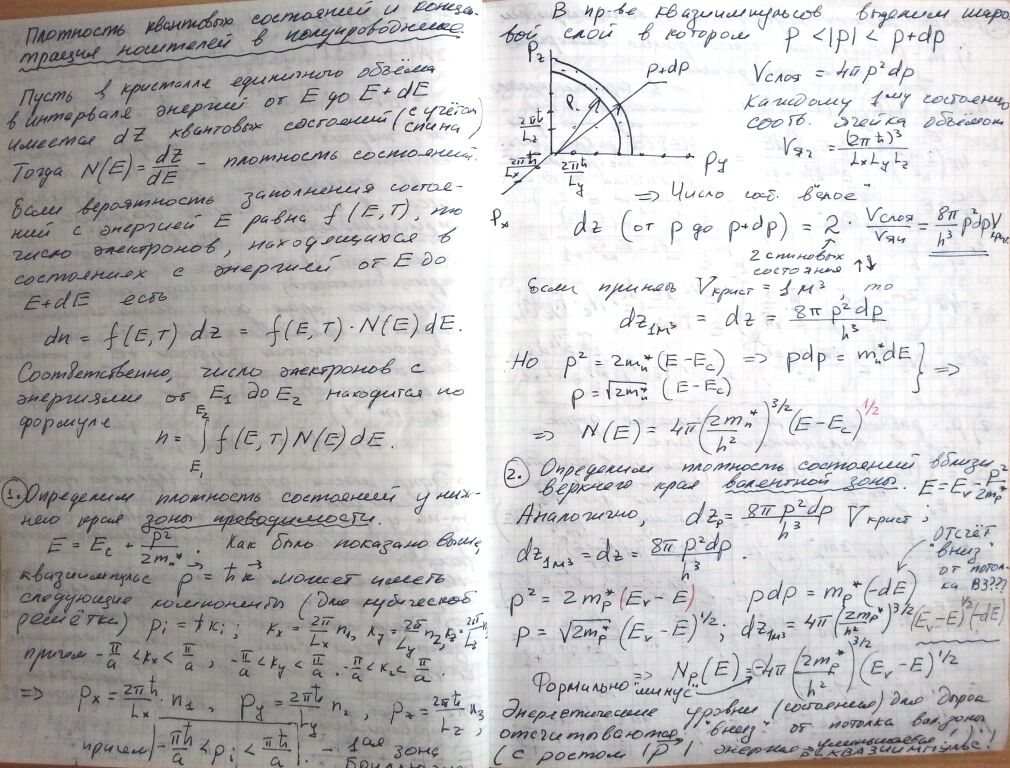 Плотность квантовых состояний и концен-
трация носителей в полупроводнике.
Пусть в кристалле единичного объёма
в интервале энергий от E до E+dE
имеется dZ квантовых состояний (с учётом спина)
Тогда N(E) = dZ/dE – плотность состояний.
Если вероятность заполнения состоя-
ний с энергией E равна f(E,T), то
число электронов, находящихся в
состояниях с энергией от E до
E+dE есть
dn = f(E,T) dz = f(E,T)·N(E)dE.
Соответственно, число электронов с
энергиями от E₁ до E₂ находится по
формуле
n = ∫ f(E,T)N(E)dE.
E₂
E₁
1. Определим плотность состояний у ниж-
него края зоны проводимости.
E = E_c + p²/2m_n*. Как было показано выше,
квазиимпульс p⃗ = ħk⃗ может иметь
следующие компоненты (для кубической
решётки) p_i = ħk_i; k_x = 2π/L_x n₁, k_y = 2π/L_y n₂,
причем -π/a < k_x < π/a, -π/a < k_y < π/a, -π/a < k_z < π/a.
=> p_x = 2πħ/L_x · n₁, p_y = 2πħ/L_y n₂, p_z = 2πħ/L_z n₃
причем -πħ/a < p_i < πħ/a – 1ая зона
В пр-ве квазиимпульсов выделим шаро-
вой слой в котором p < |p| < p+dp.
P_z
p+dp
p
2πħ/L_z
2πħ/L_x
2πħ/L_y
P_y
P_x
V слоя = 4πp²dp
Каждому 1му состоянию
соотв. ячейка объёмом
V яч = (2πħ)³/L_xL_yL_z
=> Число сост. в "слое"
dz (от p до p+dp) = 2 · V слоя/V яч = 8π/h³ p²dp V крис.
2 спиновых
состояния ↑↓
Если принять V крист = 1м³, то
dz_1м³ = dz = 8πp²dp/h³
Но p² = 2m_n*(E-E_c) => pdp = m_n*dE } =>
p = √2m_n* (E-E_c)
=> N(E) = 4π(2m_n*/h²)^3/2 (E-E_c)^1/2
2. Определим плотность состояний вблизи
верхнего края валентной зоны. E = E_v - p²/2m_p*
Аналогично, dz_p = 8πp²dp/h³ V крист;
dz_1м³ = dz = 8πp²dp/h³.
Отсчёт
"вниз"
от потол-
ка ВЗ???
p² = 2m_p*(E_v-E) pdp = m_p*(-dE)
p = √2m_p* (E_v-E)^1/2; dz_1м³ = 4π(2m_p*/h²)^3/2 (E_v-E)^1/2(-dE)
Формально "минус" => N_p(E) = -4π(2m_p*/h²)^3/2 (E_v-E)^1/2
Энергетические уровни (состояния) для дырок
отсчитываются "вниз" от потолка вал. зоны
(с ростом |p⃗| энергия уменьшается!)
квазиимпульс!